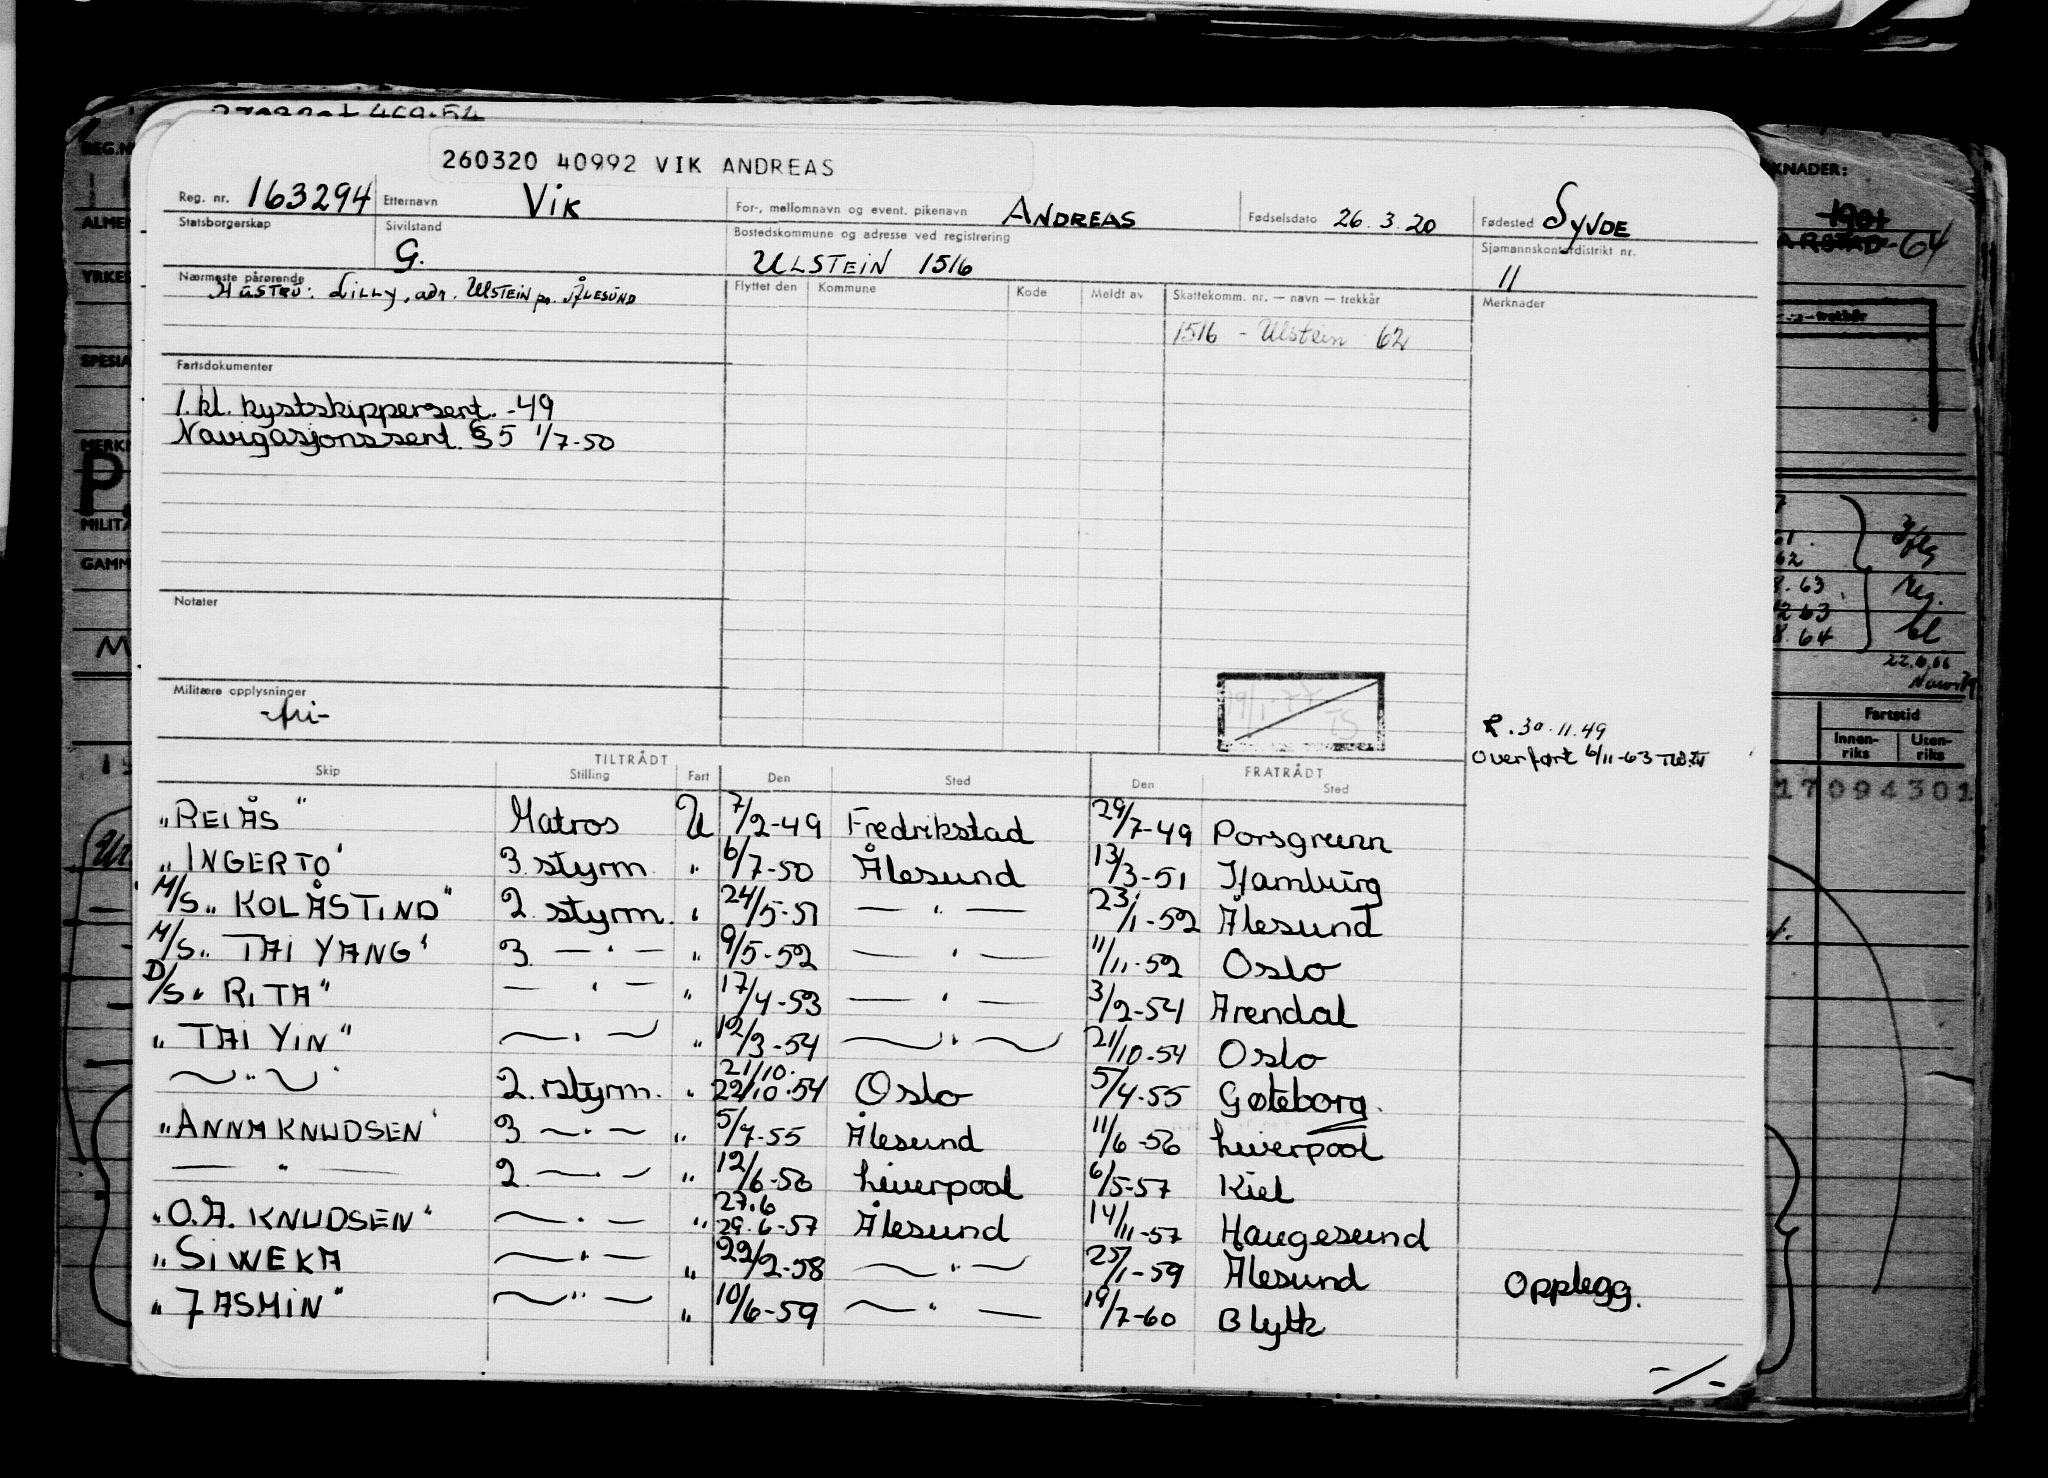 260320 40992 VIK ANDREAS
Reg. nr. 163294 Etternavn Vik For-, mellomnavn og event. pikenavn ANDREAS Fødselsdato 26.3.20 Fødested SYVDE
Statsborgerskap Sivilstand G. Bostedskommune og adresse ved registrering ULSTEIN 1516 Sjømannskontordistrikt nr. 11
Nærmeste pårørende
HUSTRU: LILLY, adr. ULSTEIN pr. ÅLESUND
Flyttet den Kommune Kode Meldt av Skattekomm. nr. — navn — trekkår Merknader
1516 - Ulstein 62
Fartsdokumenter
1. kl. kystskippersert. -49
Navigasjonssert. §5 1/7-50
Notater
Militære opplysninger
-fri-
R. 30.11.49
Overført 6/11-63
TILTRÅDT FRATRÅDT
Skip Stilling Fart Den Sted Den Sted
"REIÅS" Matros U 7/2-49 Fredrikstad 29/7-49 Porsgrunn
"INGERTO" 3. styrm. " 6/7-50 Ålesund 13/3-51 Hamburg
M/S "KOLÅSTIND" 2. styrm. " 24/5-51 — " — 23/1-52 Ålesund
M/S "TAI YANG" 3. — " — " 9/5-52 — " — 11/11-52 Oslo
D/S "RITA" — " — " 17/4-53 — " — 3/2-54 Arendal
"TAI YIN" — " — " 12/3-54 — " — 21/10-54 Oslo
— " — 2. styrm. " 21/10. 22/10-54 Oslo 5/4-55 Gøteborg.
"ANNA KNUDSEN" 3 — " — " 5/7-55 Ålesund 11/6-56 Liverpool
— " — 2 — " — " 12/6-56 Liverpool 6/5-57 Kiel
"O.A. KNUDSEN" — " — " 27.6 29.6-57 Ålesund 14/11-57 Haugesund
"SIWEKA — " — " 22/2-58 — " — 25/1-59 Ålesund Opplegg.
"JASMIN" — " — " 10/6-59 — " — 19/7-60 Blyth
-/-